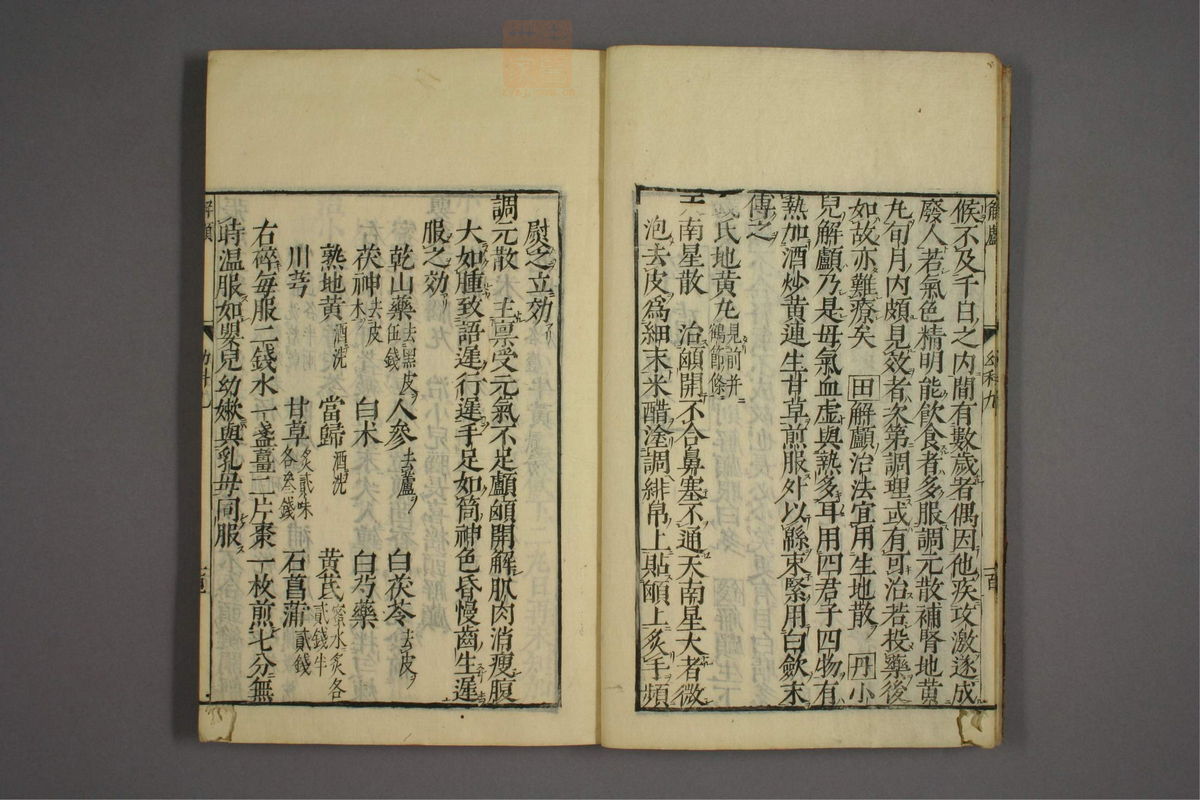 解顱
幼科九
候不及千日之內間有數歲者偶因他疾攻激遂成
廢人若氣色精明能飲食者多服調元散補腎地黃
九旬月內頗見效者次第調理或有可治若投藥後
如故亦難療矣 田解顱治法宜用生地散 丹小
兒解顱乃是母氣血虛與熱多耳用四君子四物有
熱加酒炒黃連生甘草煎服外以緜束緊用白歛末
傅之
氏地黃丸見前并鶴節條
南星散 治顖開不合鼻塞不通天南星大者微
泡去皮爲細末米醋塗調緋帛上貼顖上炙手頻
熨之立効
調元散 主禀受元氣不足顱顖開解肌肉消瘦腹
大如腫致語遲行遲手足如筒神色昏慢齒生遲
服之効
乾山藥去黑皮伍錢 人參去蘆 白茯苓去皮
茯神去皮木 白朮 白芍藥
熟地黃酒洗 當歸酒洗 黃芪蜜水炙各貳錢半
川芎 甘草炙貳味各叁錢 石菖蒲貳錢
右碎每服二錢水一盞薑二片棗一枚煎七分無
時温服如嬰兒幼嫰與乳母同服